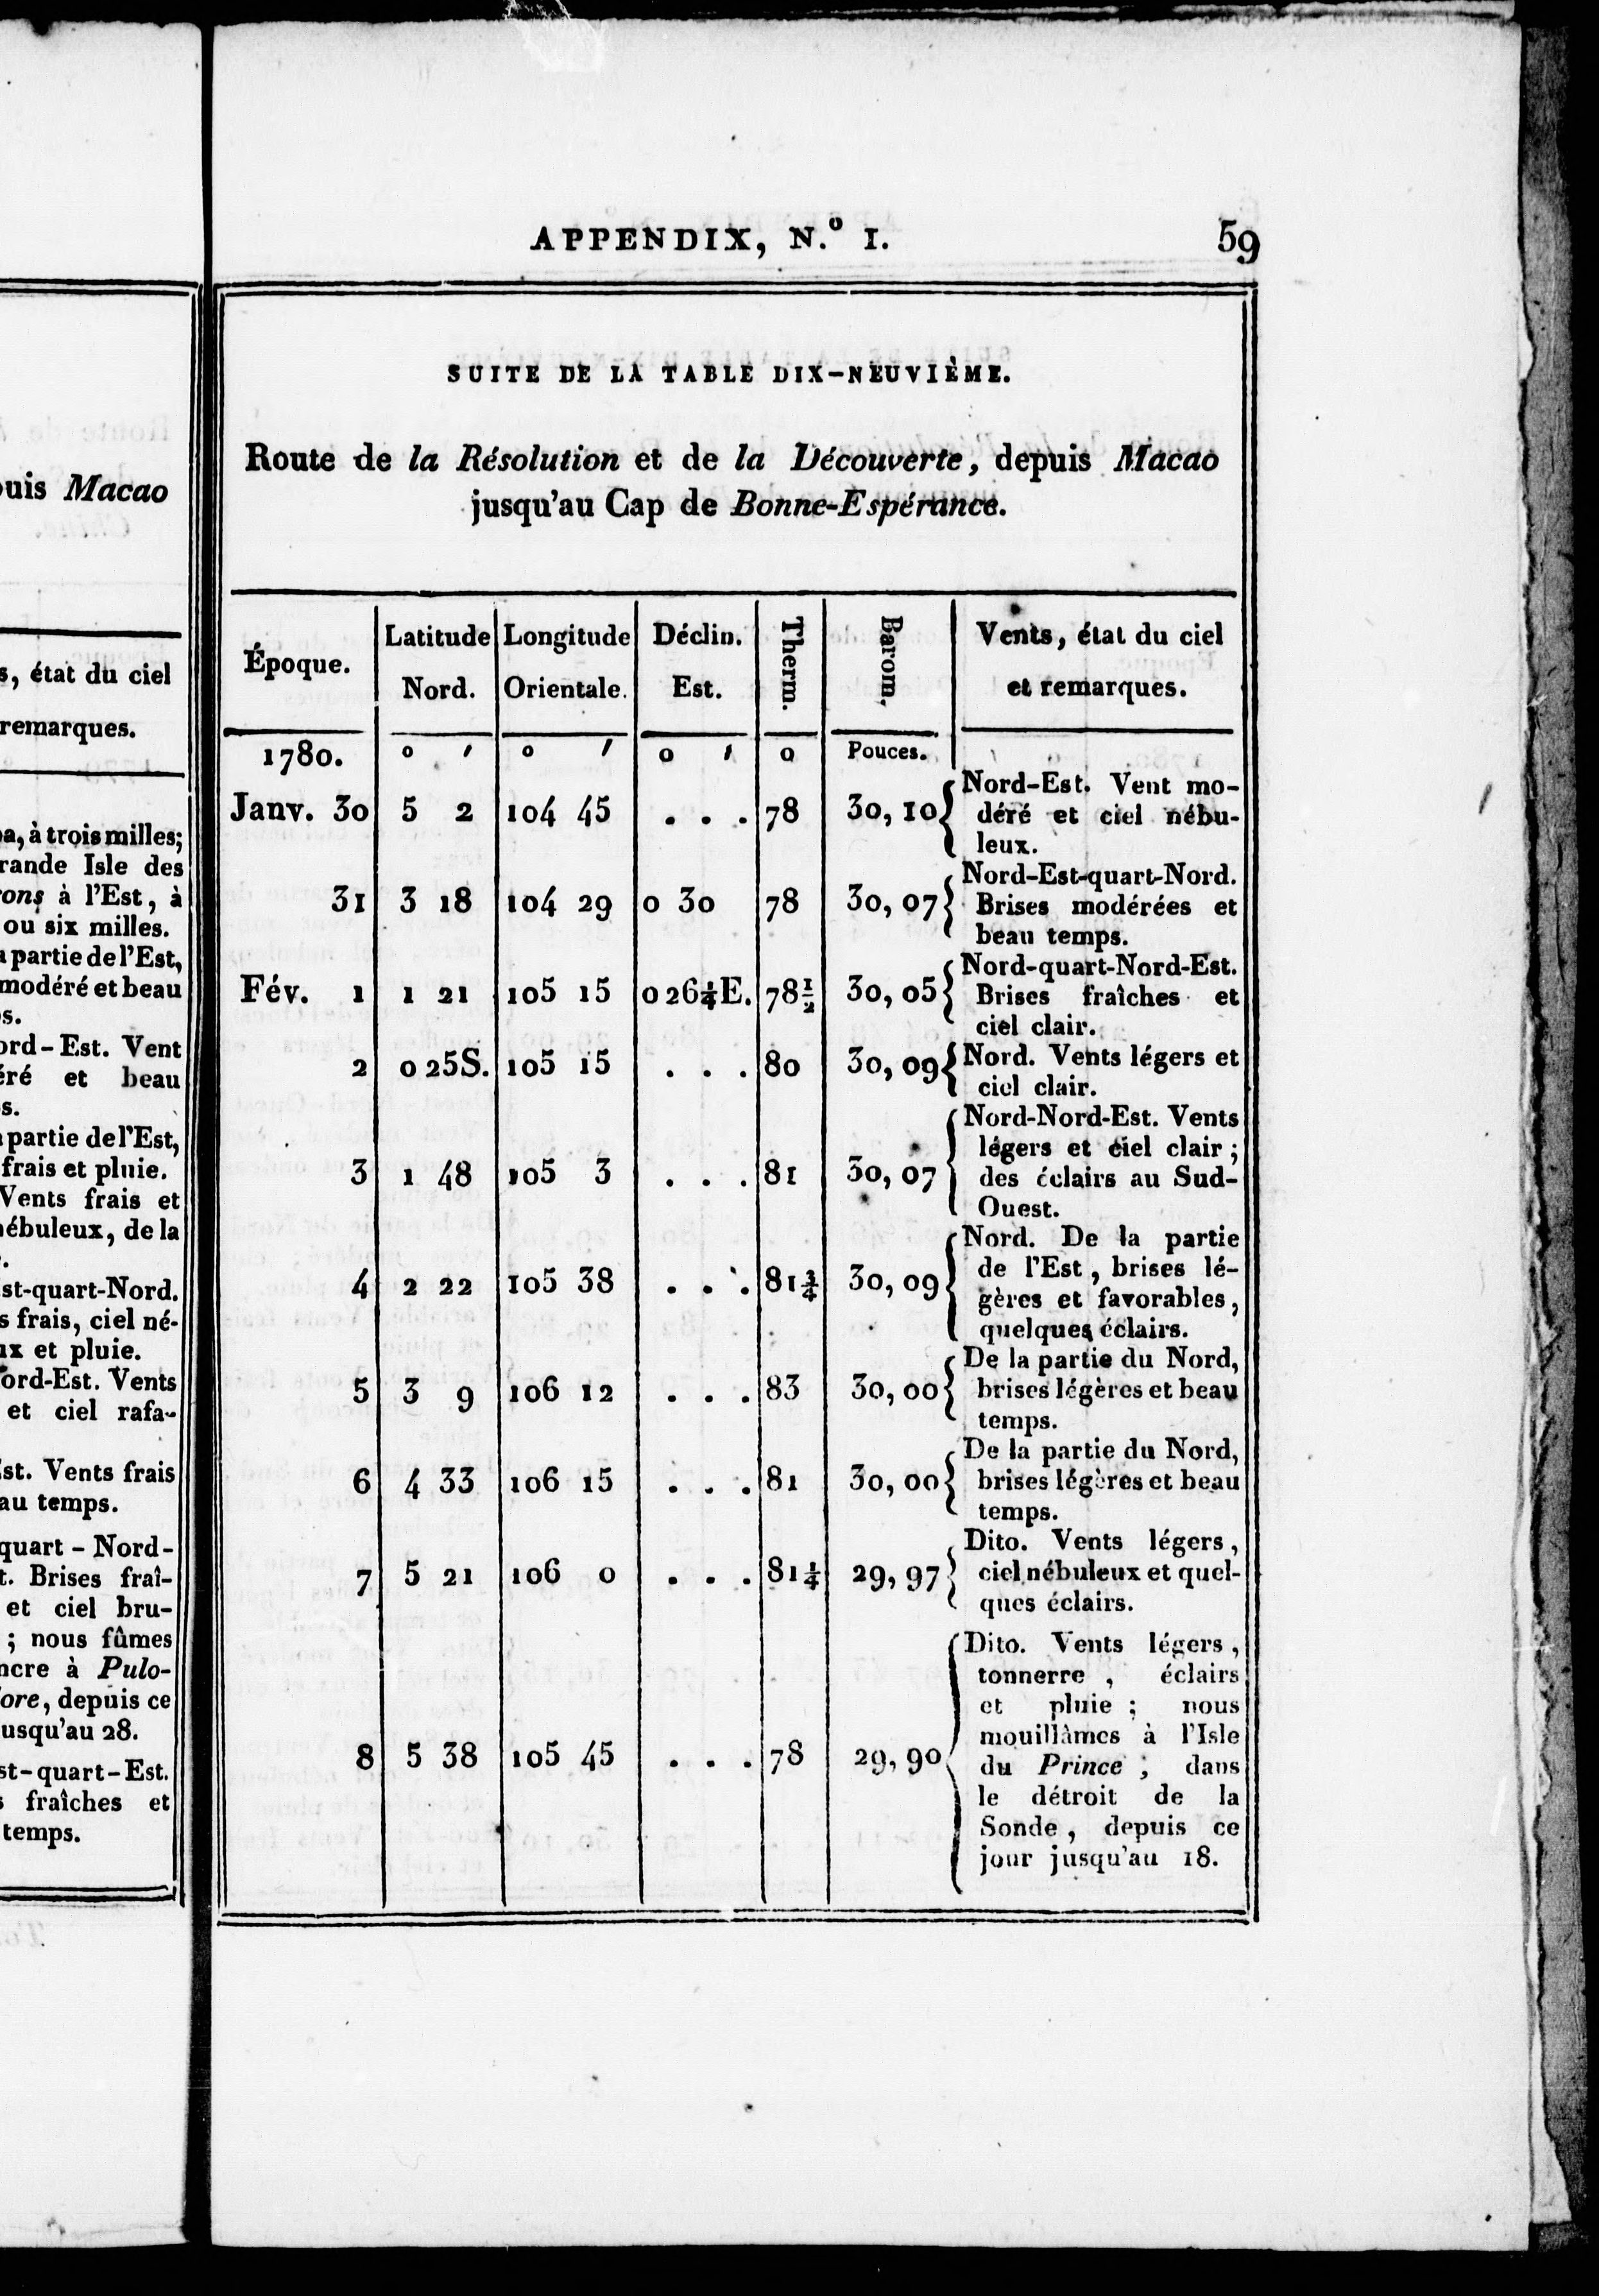 puis Macao
s, état du ciel
remarques.
pa, à trois milles;
rande Isle des
rons à l'Est, à
ou six milles.
a partie de l'Est,
modéré et beau
s.
ord-Est. Vent
éré et beau
s.
partie de l'Est,
frais et pluie.
Vents frais et
nébuleux, de la
st-quart-Nord.
s frais, ciel né-
ux et pluie.
ord-Est. Vents
et ciel rafa-
Est. Vents frais
au temps.
quart - Nord-
t. Brises fraî-
et ciel bru-
; nous fûmes
ncre à Pulo-
ore, depuis ce
jusqu'au 28.
st-quart-Est.
s fraîches et
temps.
APPENDIX, N.º I. 59
SUITE DE LA TABLE DIX-NEUVIÈME.
Route de la Résolution et de la Découverte, depuis Macao
jusqu'au Cap de Bonne-Espérance.
Époque. Latitude Nord. Longitude Orientale. Déclin. Est. Therm. Barom. Vents, état du ciel
et remarques.
1780. o ′ o ′ o ′ o Pouces.
Janv. 30 5 2 104 45 . . . 78 30, 10 Nord-Est. Vent mo-
déré et ciel nébu-
leux.
31 3 18 104 29 0 30 78 30, 07 Nord-Est-quart-Nord.
Brises modérées et
beau temps.
Fév. 1 1 21 105 15 0 26¼E. 78½ 30, 05 Nord-quart-Nord-Est.
Brises fraîches et
ciel clair.
2 0 25S. 105 15 . . . 80 30, 09 Nord. Vents légers et
ciel clair.
3 1 48 105 3 . . . 81 30, 07 Nord-Nord-Est. Vents
légers et ciel clair ;
des éclairs au Sud-
Ouest.
4 2 22 105 38 . . . 81¾ 30, 09 Nord. De la partie
de l'Est, brises lé-
gères et favorables,
quelques éclairs.
5 3 9 106 12 . . . 83 30, 00 De la partie du Nord,
brises légères et beau
temps.
6 4 33 106 15 . . . 81 30, 00 De la partie du Nord,
brises légères et beau
temps.
7 5 21 106 0 . . . 81¼ 29, 97 Dito. Vents légers,
ciel nébuleux et quel-
ques éclairs.
8 5 38 105 45 . . . 78 29, 90 Dito. Vents légers,
tonnerre, éclairs
et pluie ; nous
mouillâmes à l'Isle
du Prince ; dans
le détroit de la
Sonde, depuis ce
jour jusqu'au 18.